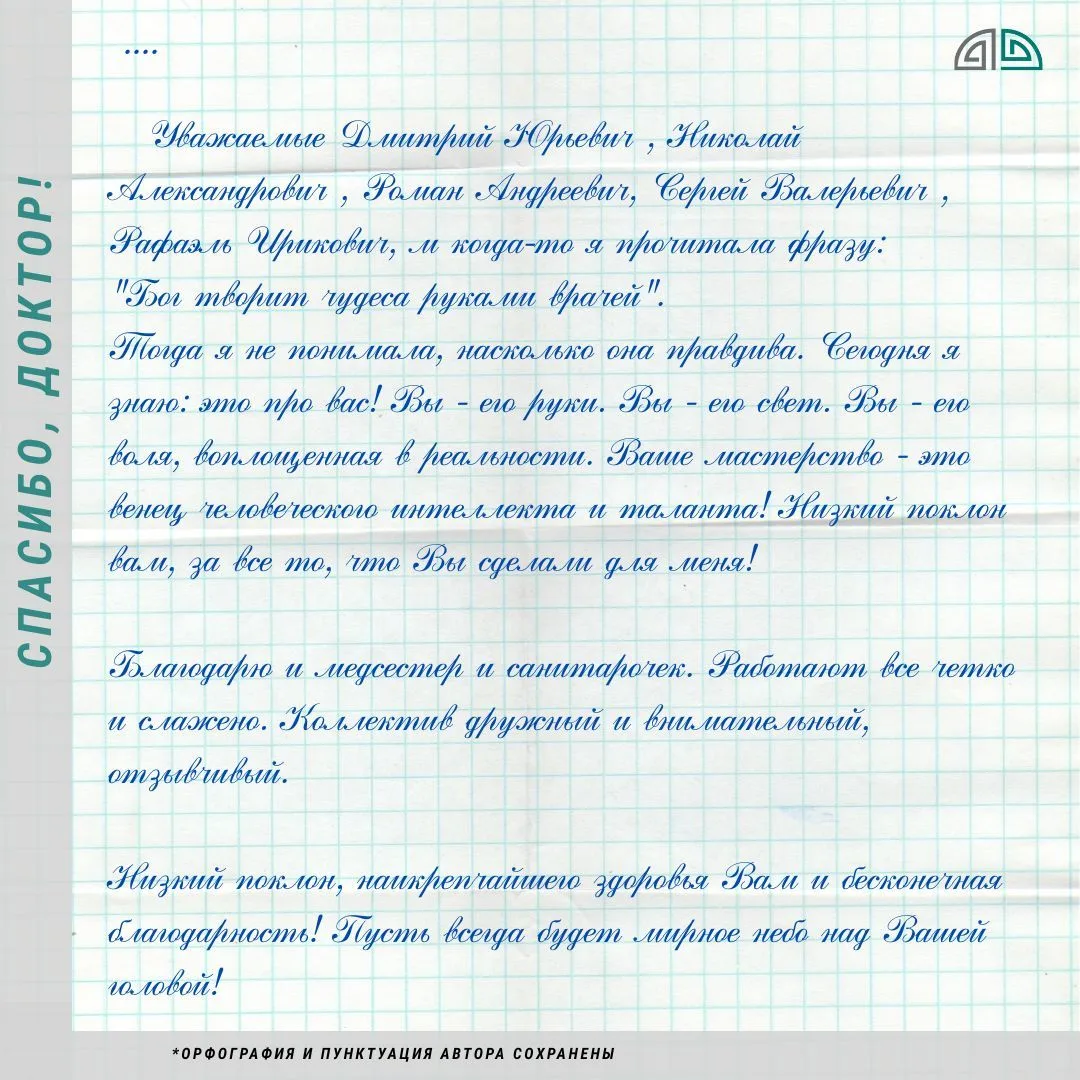 ....
Уважаемые Дмитрий Юрьевич , Николай
Александрович , Роман Андреевич, Сергей Валерьевич ,
Рафаэль Ирикович, м когда-то я прочитала фразу:
"Бог творит чудеса руками врачей".
Тогда я не понимала, насколько она правдива. Сегодня я
знаю: это про вас! Вы - его руки. Вы - его свет. Вы - его
воля, воплощенная в реальности. Ваше мастерство - это
венец человеческого интеллекта и таланта! Низкий поклон
вам, за все то, что Вы сделали для меня!
Благодарю и медсестер и санитарочек. Работают все четко
и слажено. Коллектив дружный и внимательный,
отзывчивый.
Низкий поклон, наикрепчайшего здоровья Вам и бесконечная
благодарность! Пусть всегда будет мирное небо над Вашей
головой!
СПАСИБО, ДОКТОР!
*ОРФОГРАФИЯ И ПУНКТУАЦИЯ АВТОРА СОХРАНЕНЫ